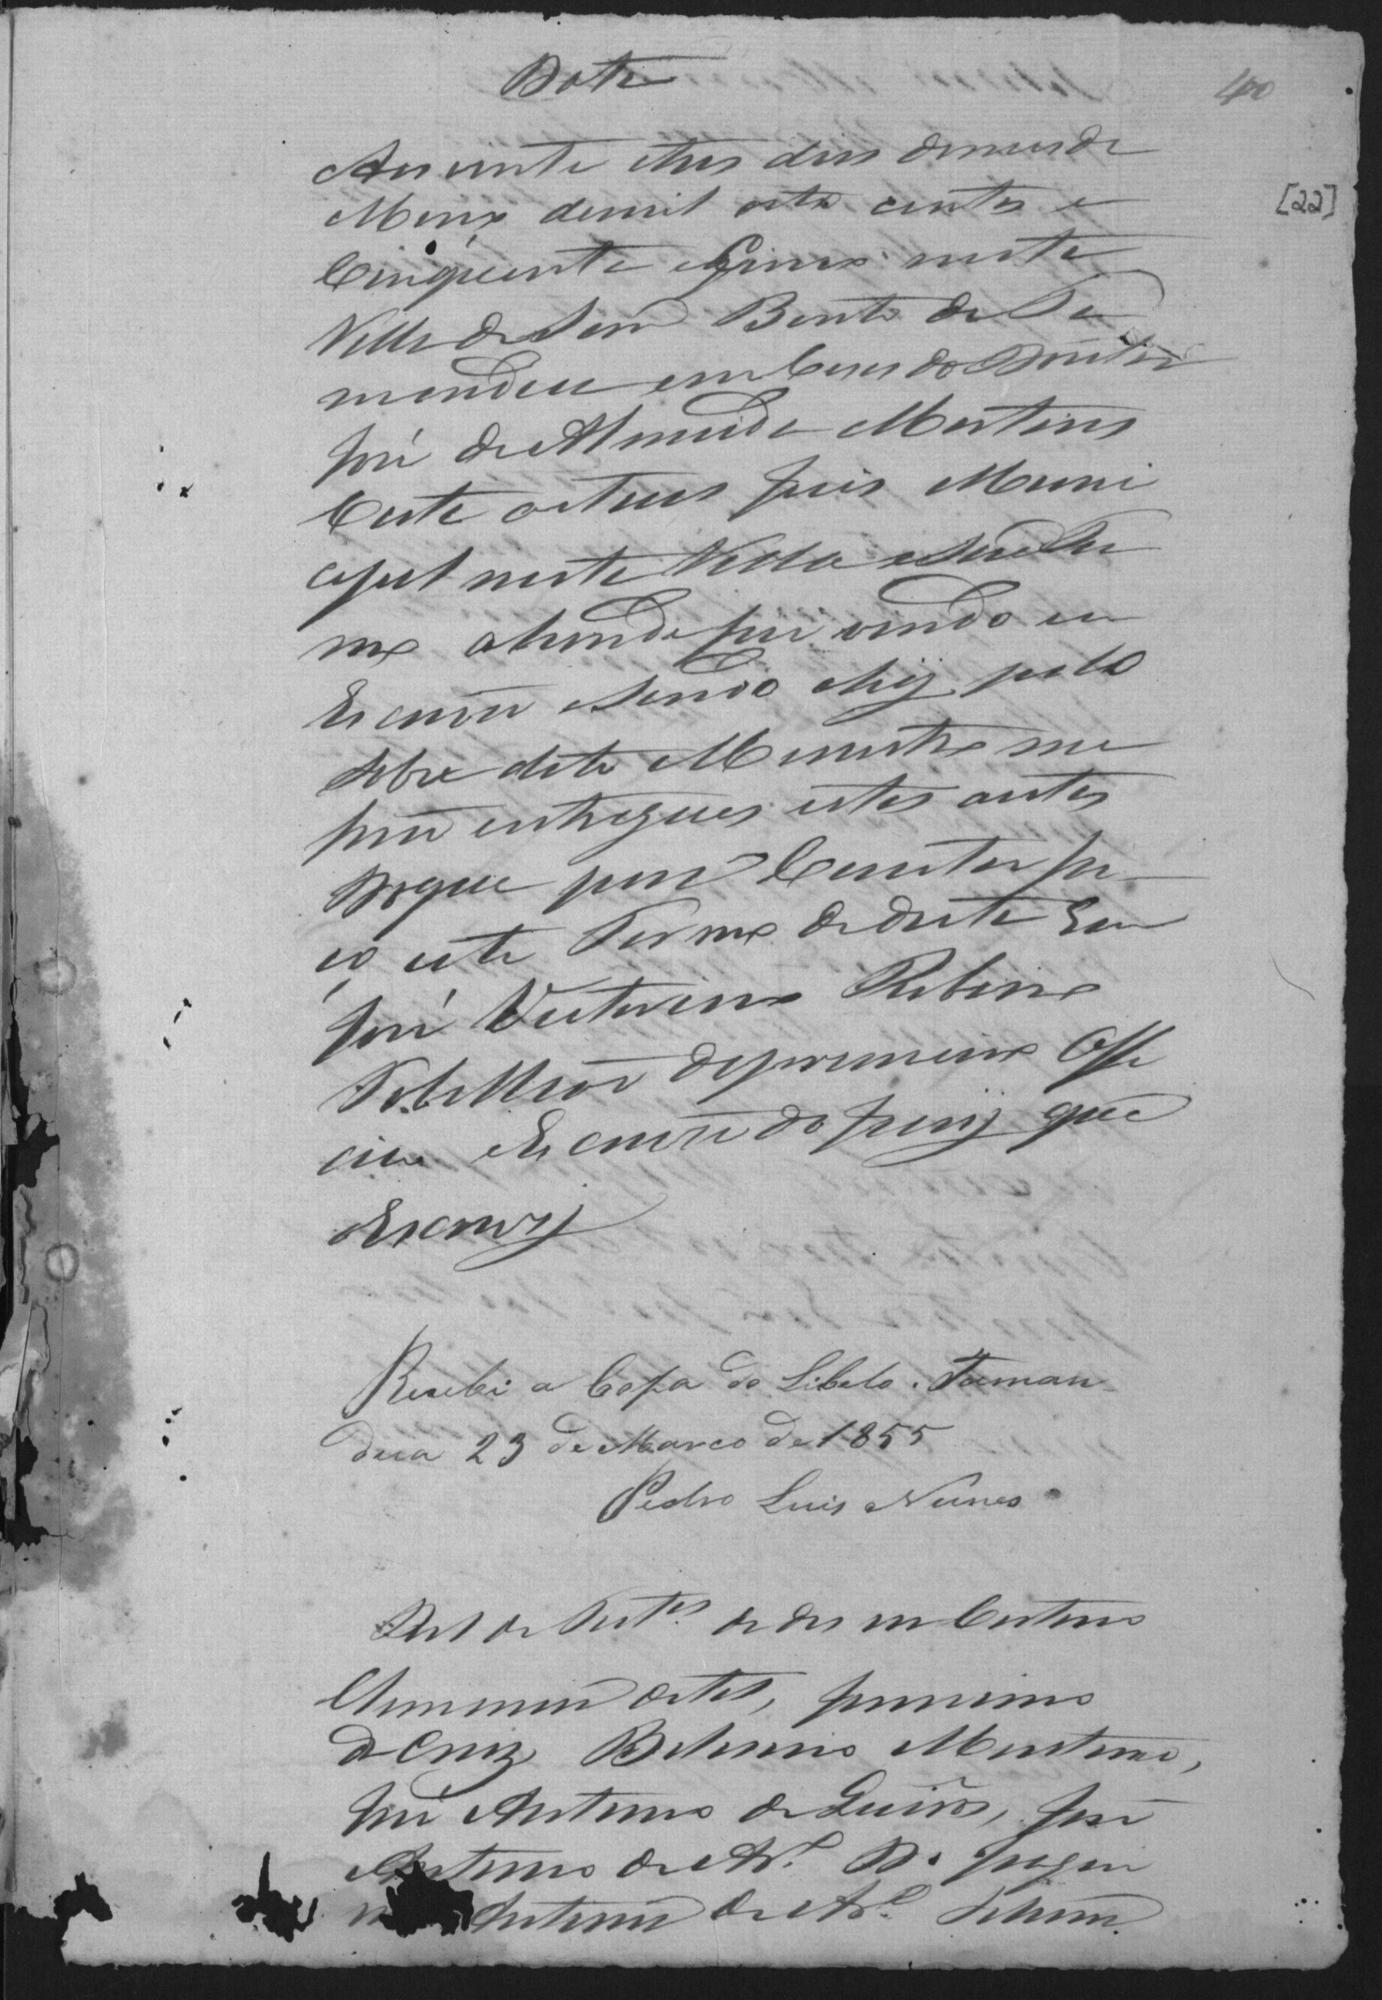 Data
40
Aos vinte etres dias domes de
Março demil oito centos e
[22]
Cinqüenta eSinco nesta
Villa de Sam Bento de Ta
mandua em Casa do Doutor
José de Almeida Martins
Costa actual Juis Muni
cipal nesta Villa eSeu Ter
mo ahonde fui vindo eu
Escrivão esendo ahij pelo
Sobre dito Menistro me
forão entregues estes autos
Doque para Constar fa
ço este Termo de data Eu
José Victorino Ribeiro
Tabellião do primeiro Offi
cio eEscrivão do Juizo que
oEscrevy
Recebi a Copia do Libelo. Taman
dua 23 de Março de 1855
Pedro Luis Nunes
Rol de Test.as
Antonio
da Cruz Monteiro,
José Antonio de José
Antonio de
Antonio de